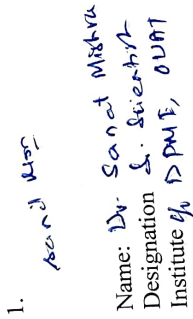 1.
Name: Dr. Sanat Mishra
Designation S. Scientist
Institute % DPME, OUAT